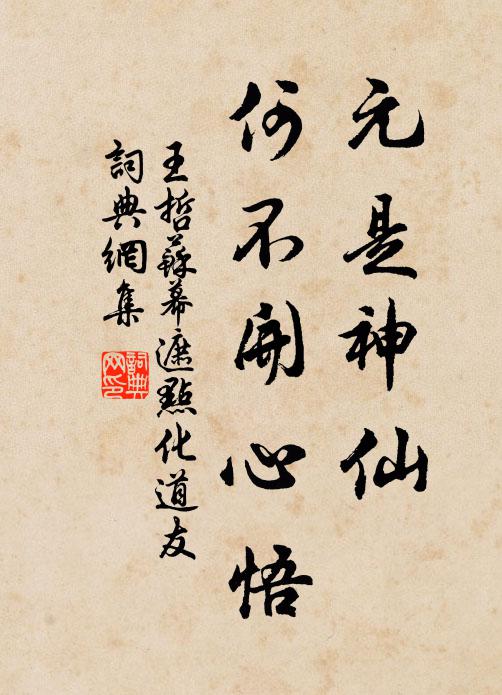 元是神仙
何不開心悟
王哲蘇幕遮點化道友
詞典網集
詞典
网印